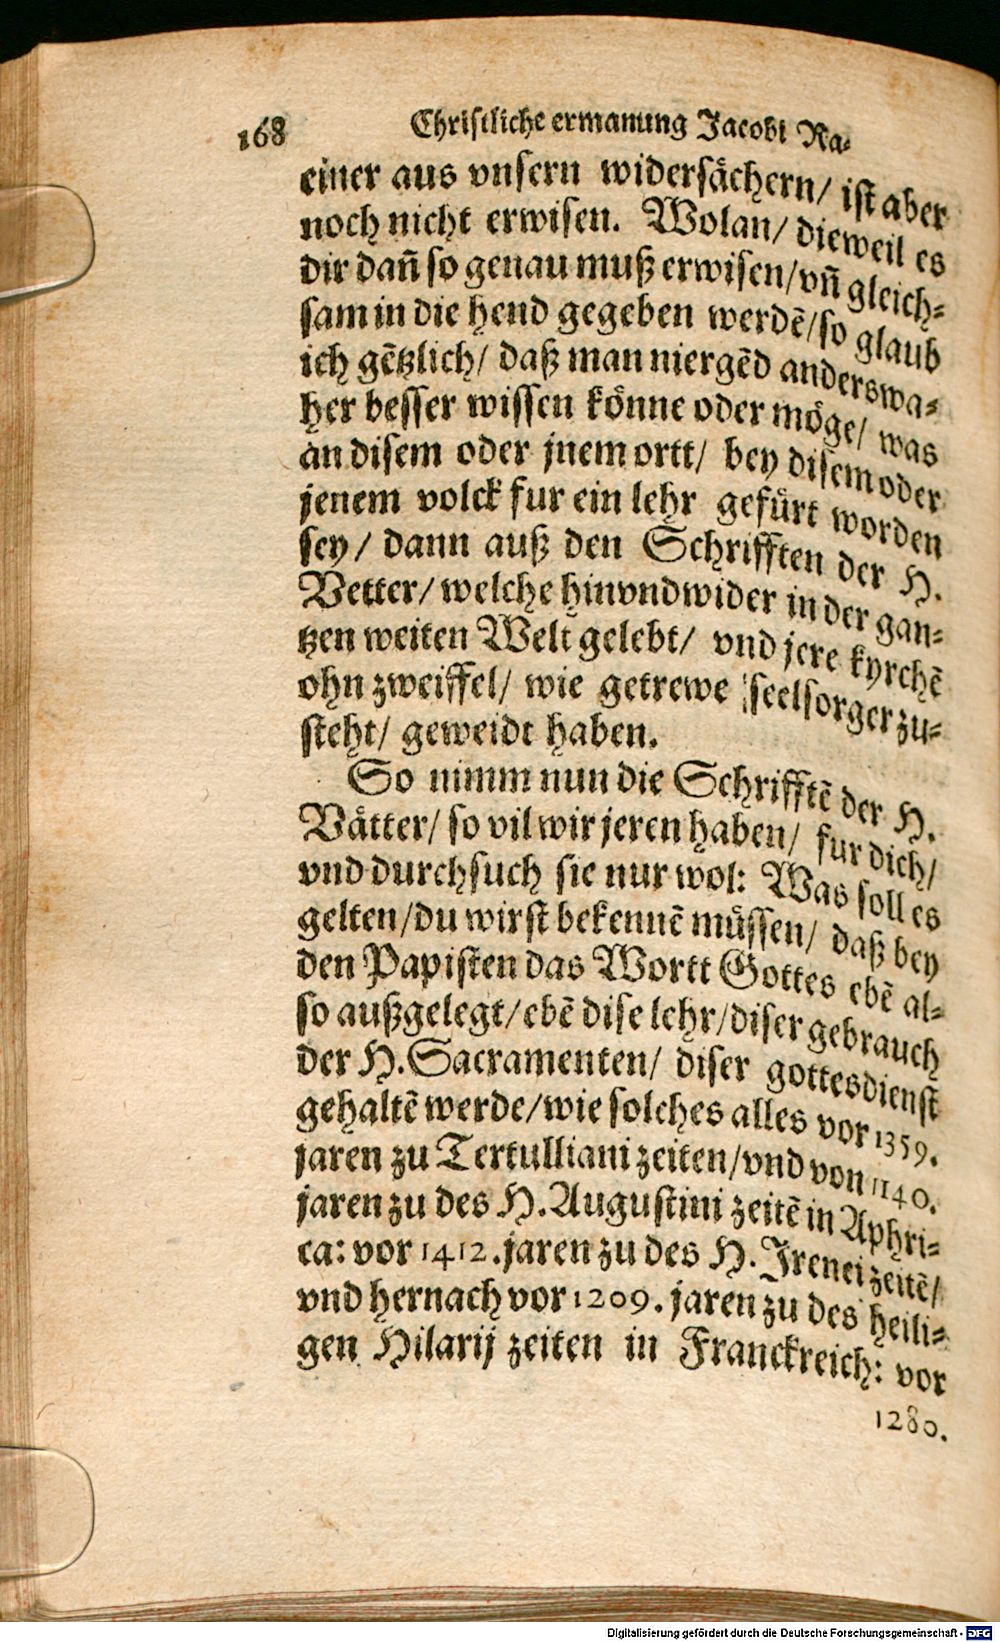 168 Christliche ermanung Jacobi Ra-
einer aus vnsern widersächern/ ist aber
noch nicht erwisen. Wolan/ dieweil es
dir dañ so genau muß erwisen/ vñ gleich-
sam in die hend gegeben werdẽ/ so glaub
ich gẽtzlich/ daß man niergẽd anderswa-
her besser wissen könne oder möge/ was
an disem oder jnem ortt/ bey disem oder
jenem volck fur ein lehr gefürt worden
sey/ dann auß den Schrifften der H.
Vetter/ welche hinvndwider in der gan-
tzen weiten Welt gelebt/ vnd jere kyrchẽ
ohn zweiffel/ wie getrewe seelsorger zu-
steht/ geweidt haben.
So nimm nun die Schrifftẽ der H.
Vätter/ so vil wir jeren haben/ fur dich/
vnd durchsuch sie nur wol: Was soll es
gelten/ du wirst bekennẽ müssen/ daß bey
den Papisten das Wortt Gottes ebẽ al-
so außgelegt/ ebẽ dise lehr/ diser gebrauch
der H. Sacramenten/ diser gottesdienst
gehaltẽ werde/ wie solches alles vor 1359.
jaren zu Tertulliani zeiten/ vnd von 1140.
jaren zu des H. Augustini zeitẽ in Aphri-
ca: vor 1412. jaren zu des H. Irenei zeitẽ/
vnd hernach vor 1209. jaren zu des heili-
gen Hilarij zeiten in Franckreich: vor
1280.
Digitalisierung gefördert durch die Deutsche Forschungsgemeinschaft - DFG